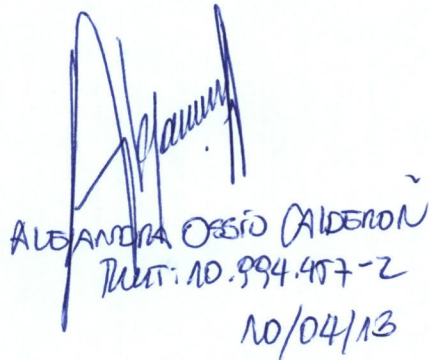 ALEJANDRA OSSIO CALDERON
RUT: 10.994.457-2
10/04/13